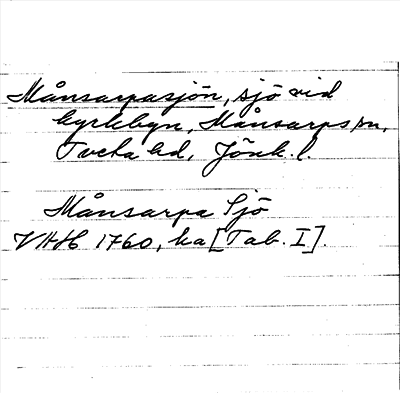 Månsarpasjön, sjö vid
kyrkbyn, Månsarps sn,
Tveta hd, Jönk. l.
Månsarpa Sjö
VHH 1760, ka [Tab. I].